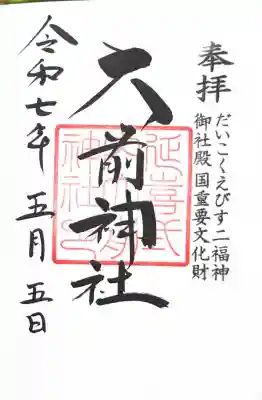 奉拝
だいこくえびす二福神
御社殿 国重要文化財
大前神社
令和七年 五月 五日